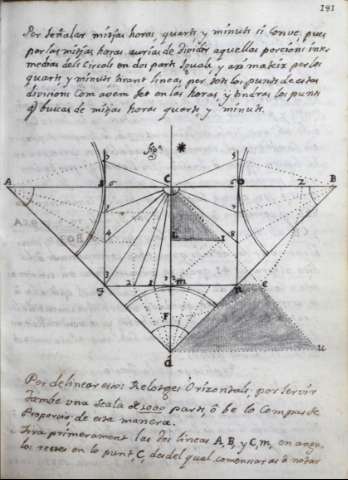 191
Per señalar mitjas horas, quarts y minuts si Conve, pues
per las mitjas horas aurias de dividir aquellas porcions inter
medias del Circol en dos parts iguals y axi mateix per los
quarts y minuts tirant lineas per tots los punts de estas
divisions Com avem feo en las horas, y tindras los punts
q̃ buscas de mitjas horas quarts y minuts.
fig.ª
*
A
B
C
D
L
I
m
n
e
g
F
d
u
Per delinear estos Relotges Orizontals, pot servir
tambe una scala de 1000 parts, ō be lo Compas de
Proporcio de esta manera.
Tira primerament las dos lineas A, B, y C, m, en angu
los rectes en lo punt, C, desdel qual comensaras ā notar